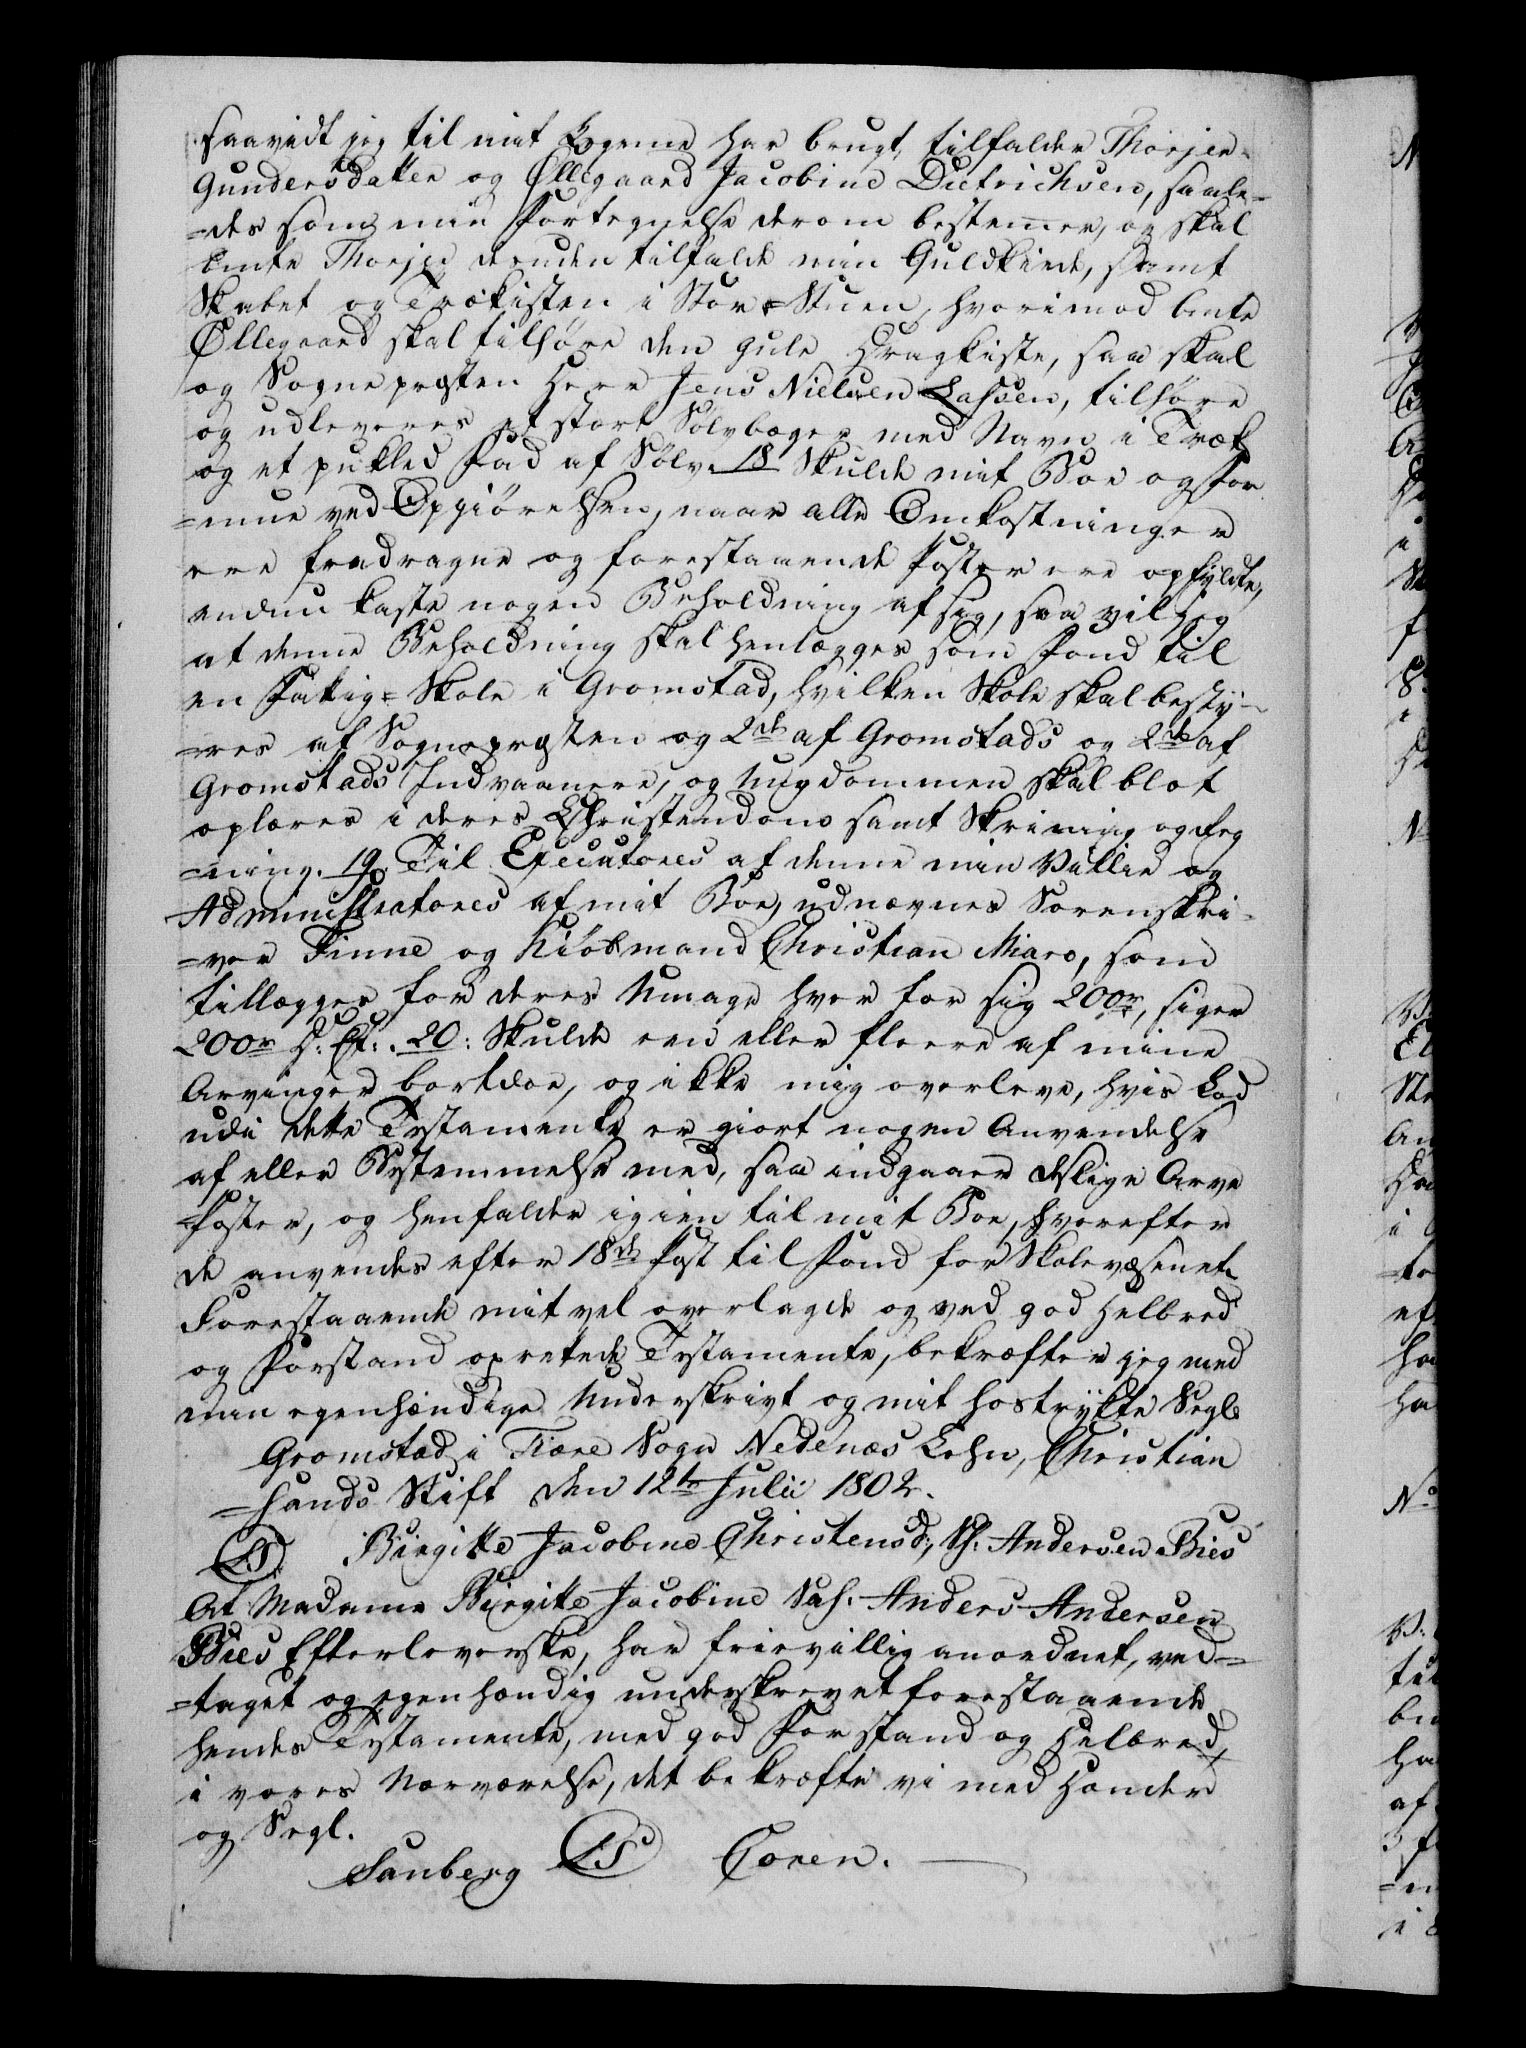 saavidt jeg til mit Legeme har brugt, tilfalder Thorjer
Gundersdatter og Øllegaard Jacobine Dietrichsen, saale-
=des som min Fortegnelse derom bestemer, og skal
bemte Thorjer desuden tilfalde min Guldkiede, samt
Skabet og Trækisten i Stor=Stuen, hvorimod bemte
Øllegaard skal tilhøre den gule Dragkiste, saa skal
og Sognepræsten Herr Jens Nielsen Lassen, tilhøre
og udleveres et stort Sølvbæger med Navn i Træk
og et pukled Fad af Sølv. 18 Skulde mit Boe og For
=mue ved Opgiørelsen, naar alle Omkostninger
ere fradragne og forestaaende Poster ere opfyldte,
endnu kaste nogen Beholdning af sig, saa vil jeg
at denne Beholdning skal henlægges som Fond til
en Fattig=Skole i Gromstad, hvilken Skole skal besty-
=res af Sognepræsten og 2de af Gromstads og 2de af
Gromstads Indvaanere, og Ungdommen skal blot
oplæres i deres Christendom samt Skrivning og Reg
=ning. 19. Til Executores af denne min Villie og
Administratores af mit Boe, udnævnes Sorenskri-
=ver Finne og Kiøbmand Christian Maro, som
tillægges for deres Umage hver for sig 200r, siger
200r D: Ct: 20: Skulde een eller fleere af mine
Arvinger bortdøe, og ikke mig overleve, hvis Lod
udi dette Testamente er giort nogen Anvendelse
af eller Bestemmelse med, saa indgaaer deslige Arve
=Poster, og henfalder igien til mit Boe, hvorefter
de anvendes efter 18de Post til Fond for Skolevæsenet.
Forestaaende mit vel overlagde og ved god Helbred
og Forstand oprettede Testamente, bekræfter jeg med
min egenhændige Underskrivt og mit hostrykte Segl.
Gromstad i Fiære Sogn Nedenæs Lehn, Christian
=sands Stift den 12te Julii 1802.
LS Birgitte Jacobine Christensd:, S: Andersen Bies
At Madame Birgitte Jacobine Sal. Anders Andersen
Bies Efterleverske, har frievillig anordnet, ved=
=taget og egenhændig underskrevet forestaaende
hendes Testamente, med god Forstand og Helbred,
i vores Nærværelse, det bekræfte vi med Hænder
og Segl.
Sanberg LS Goren.